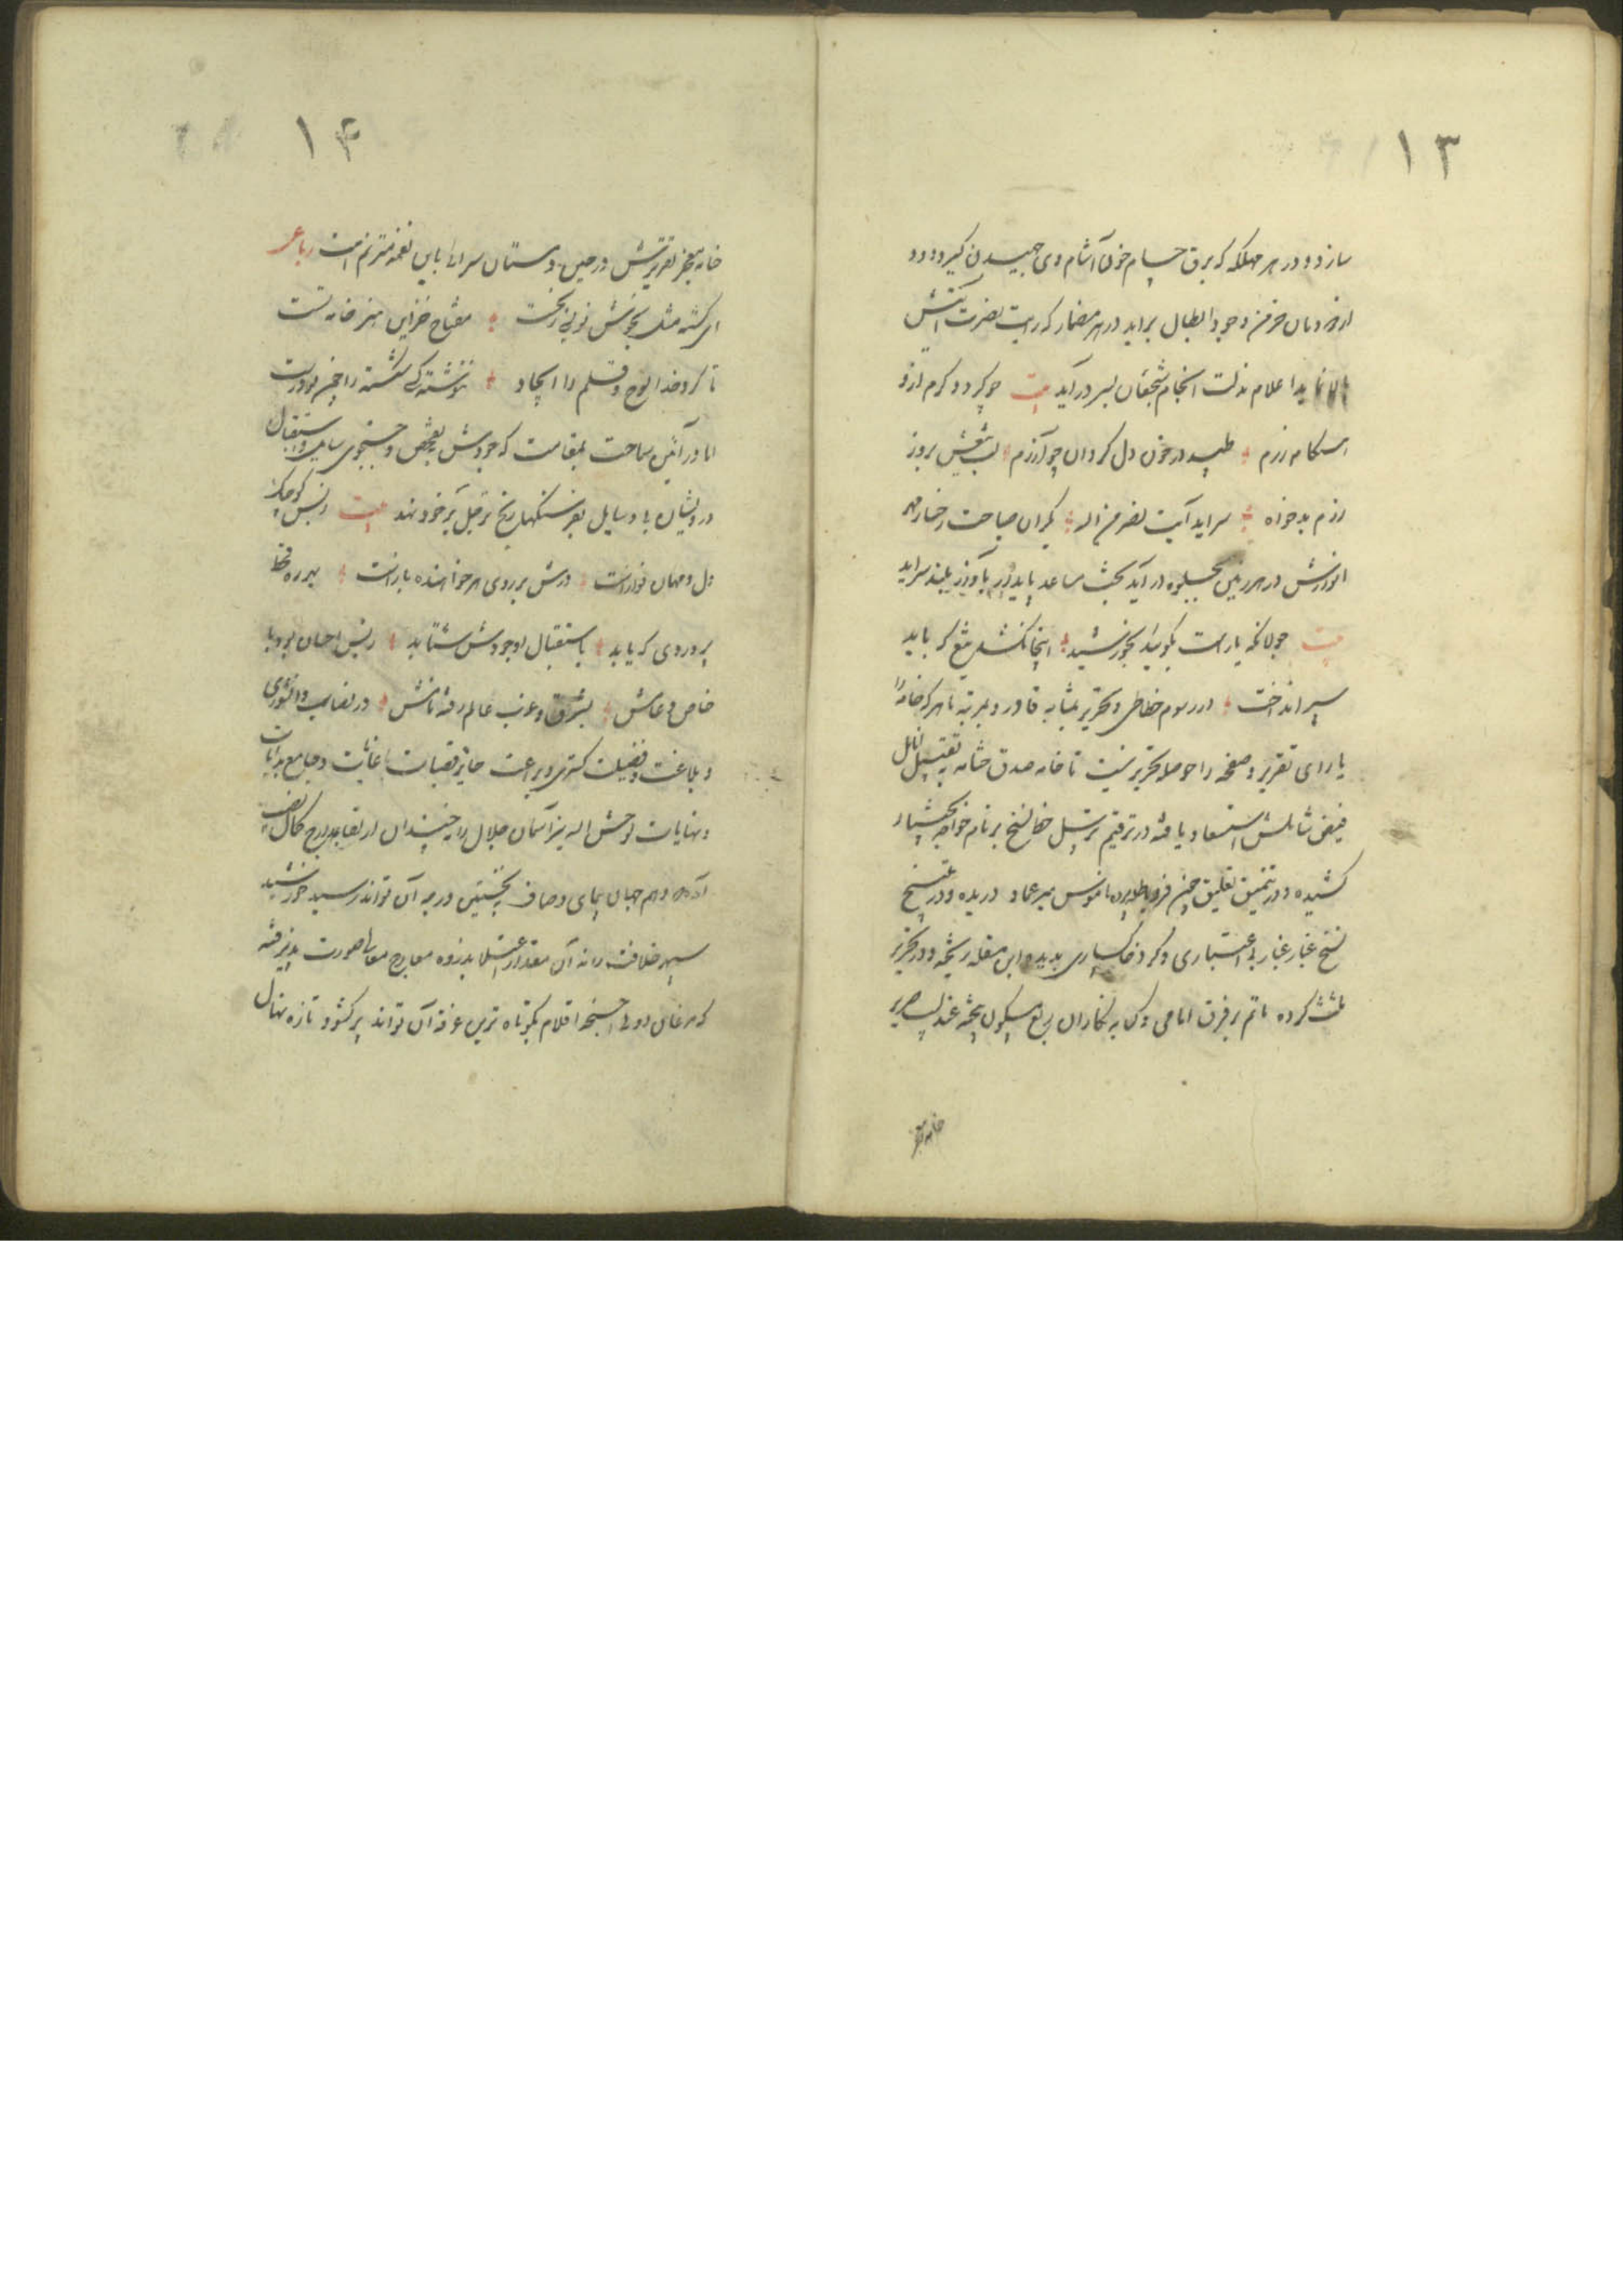 ۱۳
سازد و در هر مهلکه که برق حسام خون آشام وی جهیدن گیرد دود
از دودمان خرمن وجود ابطال براید در هر مضمار که رایت نصرت آیتش
بالا نماید اعلام مذلت انجام شجعان بسر درآید بیت چو گردد گرم ازو
هنگامه رزم طپد در خون دل گردان چو آرزم لب تیغش بروز
رزم بدخواه سراید آیت نصر من الله بگران صباحت رخسار
انوارش در هر زمین بجلوه در آید بحث ساعد باید بآواز بلند سراید
بیت جولانگه یار است بگوئید بخورشید اینجا نکشد تیغ که باید
سپر انداخت در رسوم خطاطی و تحریر بمثابه قادر و بمرتبه ماهر که خامه را
یارای تقریر و صفحه را حوصله تحریر نیست تا خامه صدق ختامه به تقبیل انامل
فیض شاملش استسعاد یافته در ترقیم ترسیل خط نسخ بر نام خواجه
کشیده و در تنمیق تعلیق چنین فرد پرده ناموس میر عماد دریده و در تنسیخ
نسخ غبار غبار بی اعتباری و گرد خاکساری بدیده ابن مقله ریخته و در تحریر
ثلث کرده ماتم بر فرق امامی و کتابه نگاران ربع مسکون بیخته عندلیب صریر
خامه معجز
۱۴
خامه معجز تقریرش در حین دستان سرائی باین نغمه مترنم است رباعی
ای گشته مثل بخوش نویسی ز نخست مفتاح خزاین هنر خامه تست
تا کرده خدا لوح و قلم را ایجاد ننوشته کسی شکسته را چنین درست
اما در آئین سماحت بمقامیست که جودش بتفحص و جستجوی سایل و استقبال
درویشان بی وسایل بفرسنگها رنج ترجل بر خود نهد بیت ز بس کوچک
دل و مهمان نواز است درش بر روی هر خواهنده باز است بهر ره
بر و روی که یابد باستقبال او جودش شتابد ز بس احسان بود با
خاص و عامش بشرق و غرب عالم رفته نامش در نصاب دانشوری
و بلاغت و فضیلت گستری و براعت حایز قصبات غایات و جامع بدایات
و نهایات لوحش الله نیز آسمان جلال را چندان ارتفاع مدارج کمال نصیب
آمده که وهم جهان پیمای وصاف بنخستین درجه آن تواند رسید خورشید
سپهر خلافت را نه آن مقدار اعتلا بذروه معارج معالی صورت پذیرفته
که مرغان اولی اجنحه اقلام بکوتاه ترین غرفه آن تواند پر گشود تازه نهال